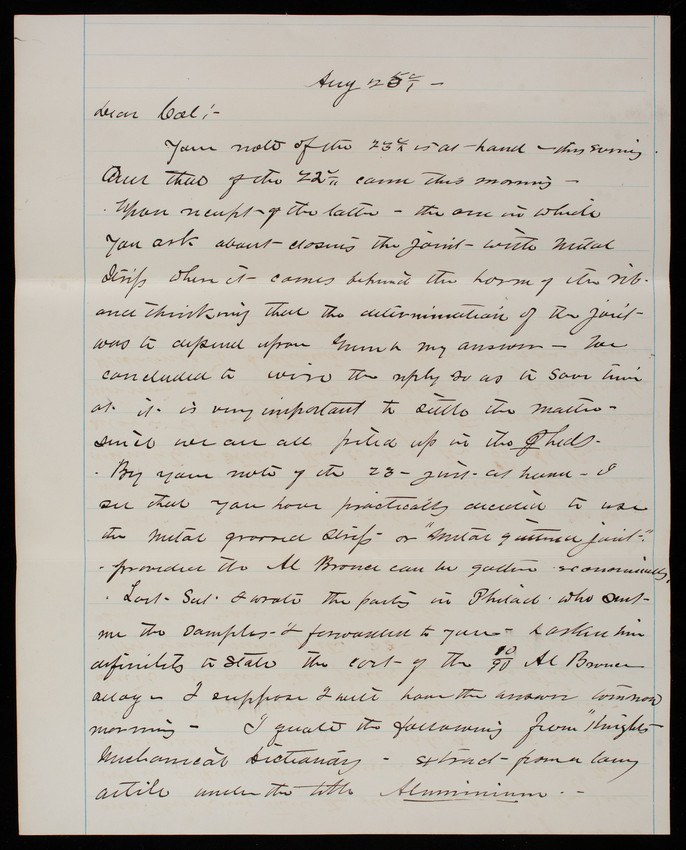 Aug 25th –
Dear Col:–
Your note of the 23d is at hand – this evening.
And that of the 22d came this morning –
Upon receipt of the latter – the one in which
you ask about closing the joint – with metal
strips when it comes behind the horn of the rib.
and thinking that the determination of the joint
was to depend upon my answer – We
concluded to wire the reply so as to save time
as it is very important to settle the matter –
since we are all piled up in the Sheds.
By your note of the 23 – just at hand – I
see that you have practically decided to use
the metal grooved strips or "metal guttered joint".
provided the Al Bronce can be gotten economically.
Last Sat. I wrote the party in Philad. who sent
me the samples I forwarded to you – & asked him
definitely to state the cost of the 10/90 Al Bronce
alloy – I suppose I will have the answer tomorrow
morning – I quote the following from "Knights
Mechanical Dictionary – extract from a long
article under the title Aluminium. –